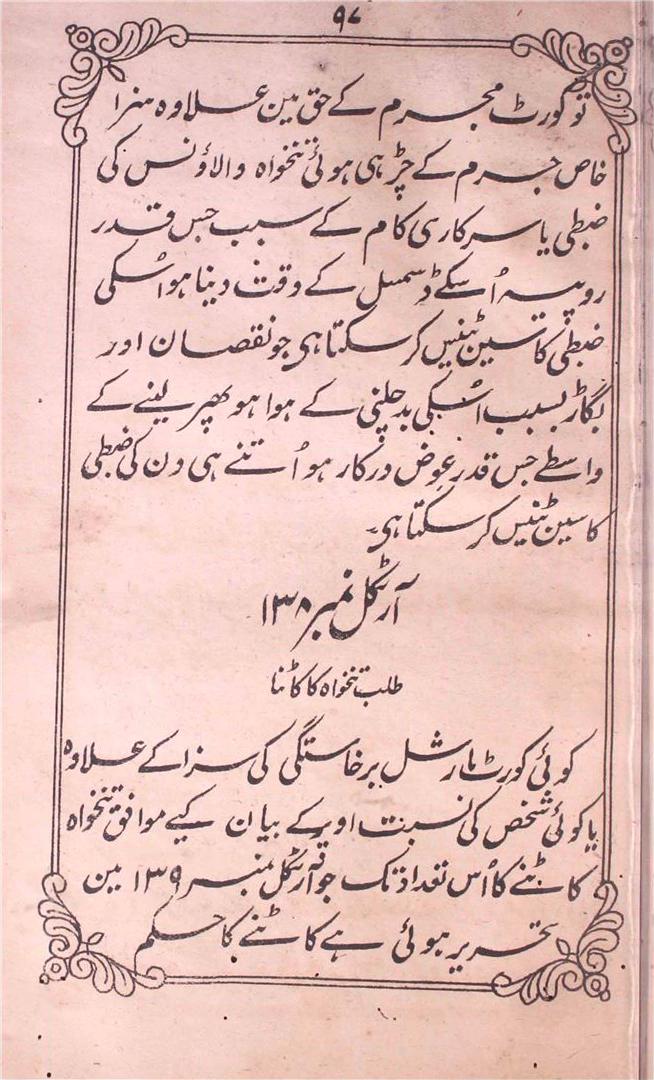 ۹۸
تو کورٹ مجرم کے حق مین علاوہ سزا
خاص جرم کے چڑہی ہوئی تنخواہ والاؤنس کی
ضبطی یا سرکاری کام کے سبب جس قدر
روپیہ اُسکے ڈسمسل کے وقت دینا ہو اسکی
ضبطی کا سین ٹینس کر سکتا ہی جو نقصان اور
بگاڑ بسبب اُسکی بدچلنی کے ہوا ہو پھر لینے کے
واسطے جس قدر عوض درکار ہو اُتنے ہی دن کی ضبطی
کا سین ٹینس کر سکتا ہی۔
آرٹکل نمبر ۱۳۸
طلب تنخواہ کا کاٹنا
کوئی کورٹ مارشل برخاستگی کی سزا کے علاوہ
یا کوئی شخص کی نسبت اوپر کے بیان کیے موافق تنخواہ
کاٹنے کا اُس تعداد تک جو آرٹکل نمبر ۱۳۹ مین
تحریر ہوئی ہے کاٹنے کا حکم